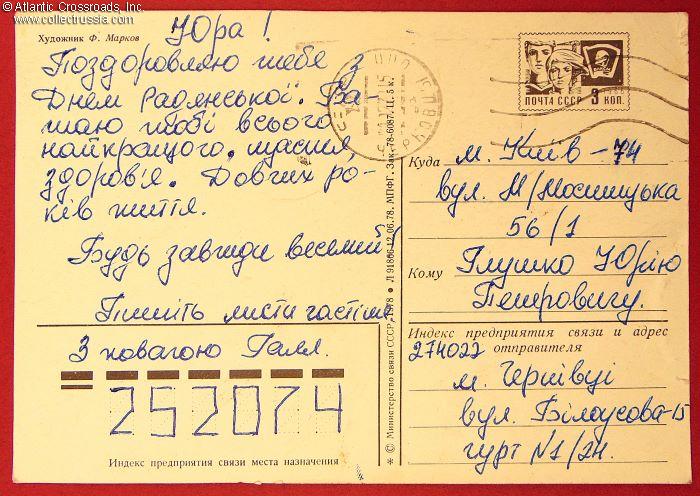 © Atlantic Crossroads, Inc.
www.collectrussia.com
Художник Ф. Марков
Юра!
Поздоровляю тебе з
Днем Радянської. Ба-
жаю тобі всього
найкращого, щастя,
здоров'я. Довгих ро-
ків життя.
Будь завжди веселий!
Пишіть листи частіше
З повагою Галя.
252074
Индекс предприятия связи места назначения
ПОЧТА СССР 3 КОП.
© Министерство связи СССР, 1978 Л 91866 12.06.78. МПФГ. Зак. 78-6087. Ц. 5 к.
Куда м. Київ – 74
вул. М/Мостицька
56/1
Кому Глушко Юрію
Петровичу.
Индекс предприятия связи и адрес
отправителя
274022
м. Чернівці
вул. Білоусова-15
гурт N1/24.